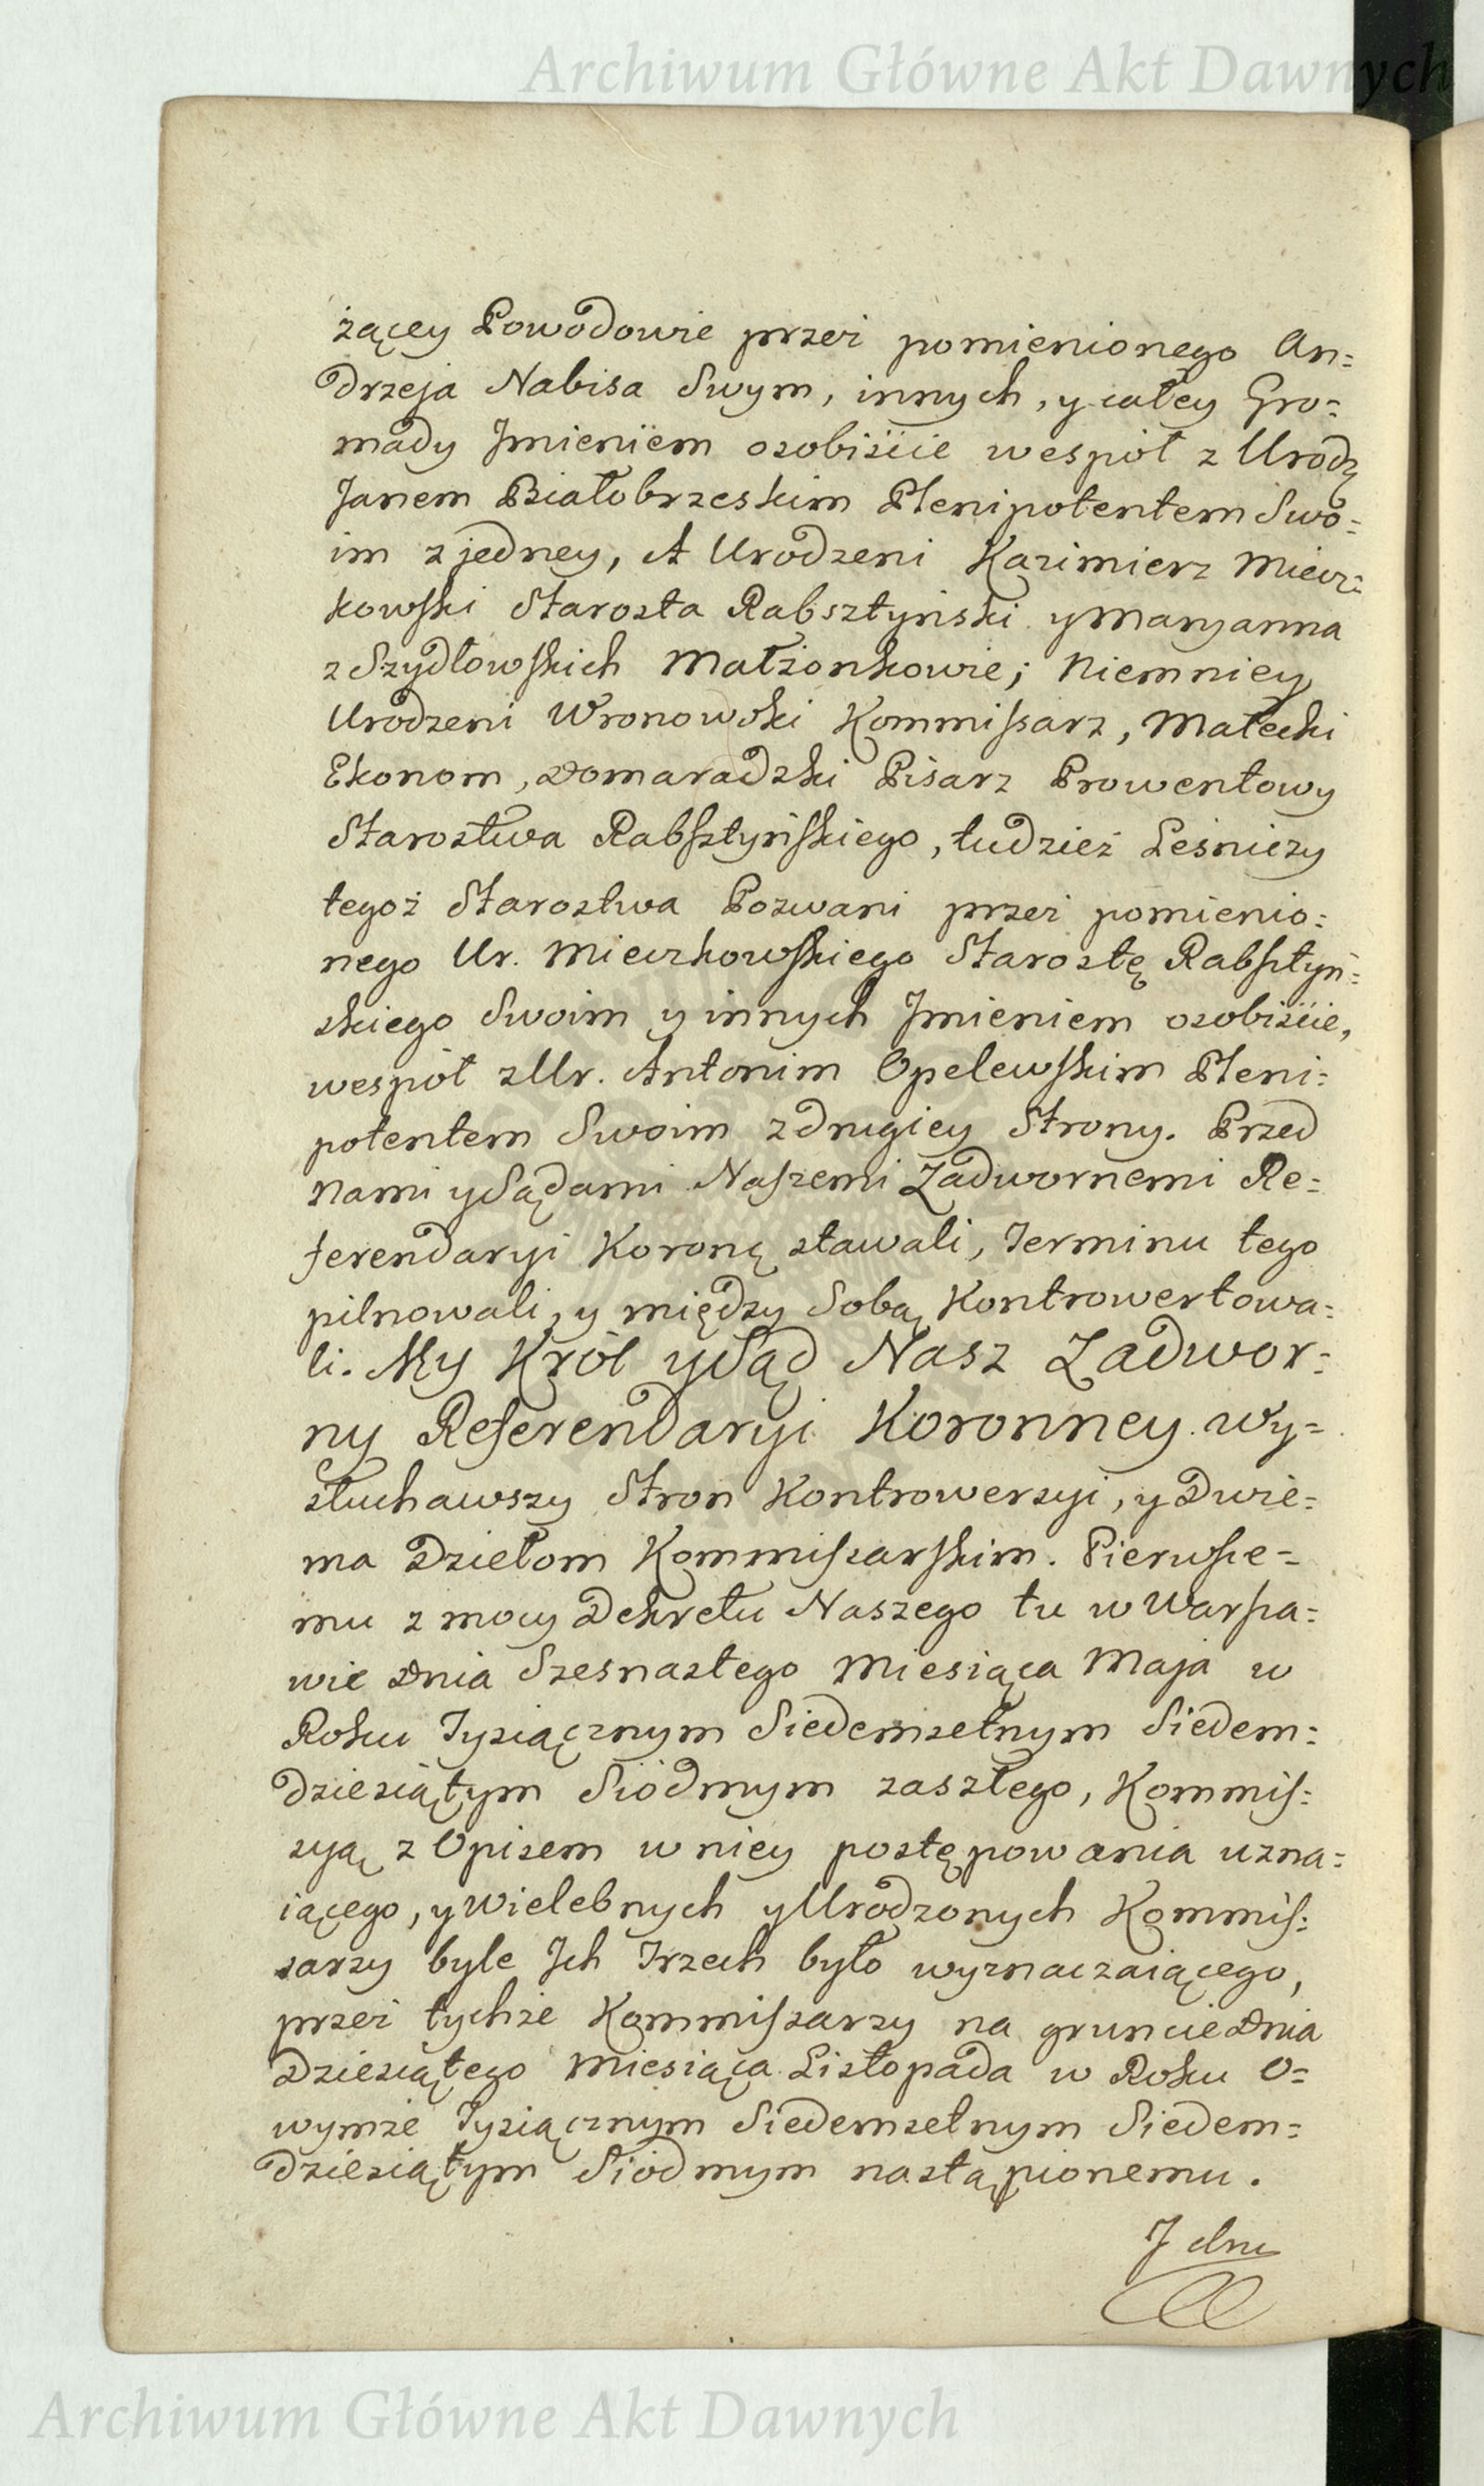 Archiwum Główne Akt Dawnych
żącey Powodowie przez pomienionego An=
drzeja Nabisa Swym, innych, y całey Gro=
mady Jmieniem osobiście wespół z Urodz
Janem Białobrzeskim Plenipotentem Swo=
im z jedney, A Urodzeni Kazimierz Miecz=
kowski Starosta Rabsztyński y Maryanna
z Szydłowskich Małżonkowie; Niemniey
Urodzeni Wronowski Kommissarz, Małecki
Ekonom, Domaradzki Pisarz Prowentowy
Starostwa Rabsztyńskiego, tudzież Leśniczy
tegoż Starostwa Pozwani przez pomienio=
nego Ur. Mieczkowskiego Starostę Rabsztyń=
skiego Swoim y innych Jmieniem osobiście,
wespół z Ur. Antonim Opelewskim Pleni=
potentem Swoim z drugiey Strony. Przed
Nami y Sądami Naszemi Zadwornemi Re=
ferendaryi Koronę stawali, Terminu tego
pilnowali, y między Sobą Kontrowertowa=
li. My Król y Sąd Nasz Zadwor=
ny Referendaryi Koronney wy=
słuchawszy Stron Kontrowersyi, y Dwie=
ma Dziełom Kommissarskim. Pierwsze=
mu z mocy Dekretu Naszego tu w Warsza=
wie Dnia Szesnastego Miesiąca Maja w
Roku Tysiącznym Siedemsetnym Siedem=
dziesiątym Siódmym zaszłego, Kommis=
syą z Opisem w niey postępowania uzna=
iącego, y Wielebnych y Urodzonych Kommis=
sarzy byle Jch Trzech było wyznaczaiącego,
przez tychże Kommissarzy na gruncie Dnia
Dziesiątego Miesiąca Listopada w Roku O=
wymże Tysiącznym Siedemsetnym Siedem=
dziesiątym Siódmym nastąpionemu.
Archiwum Główne Akt Dawnych